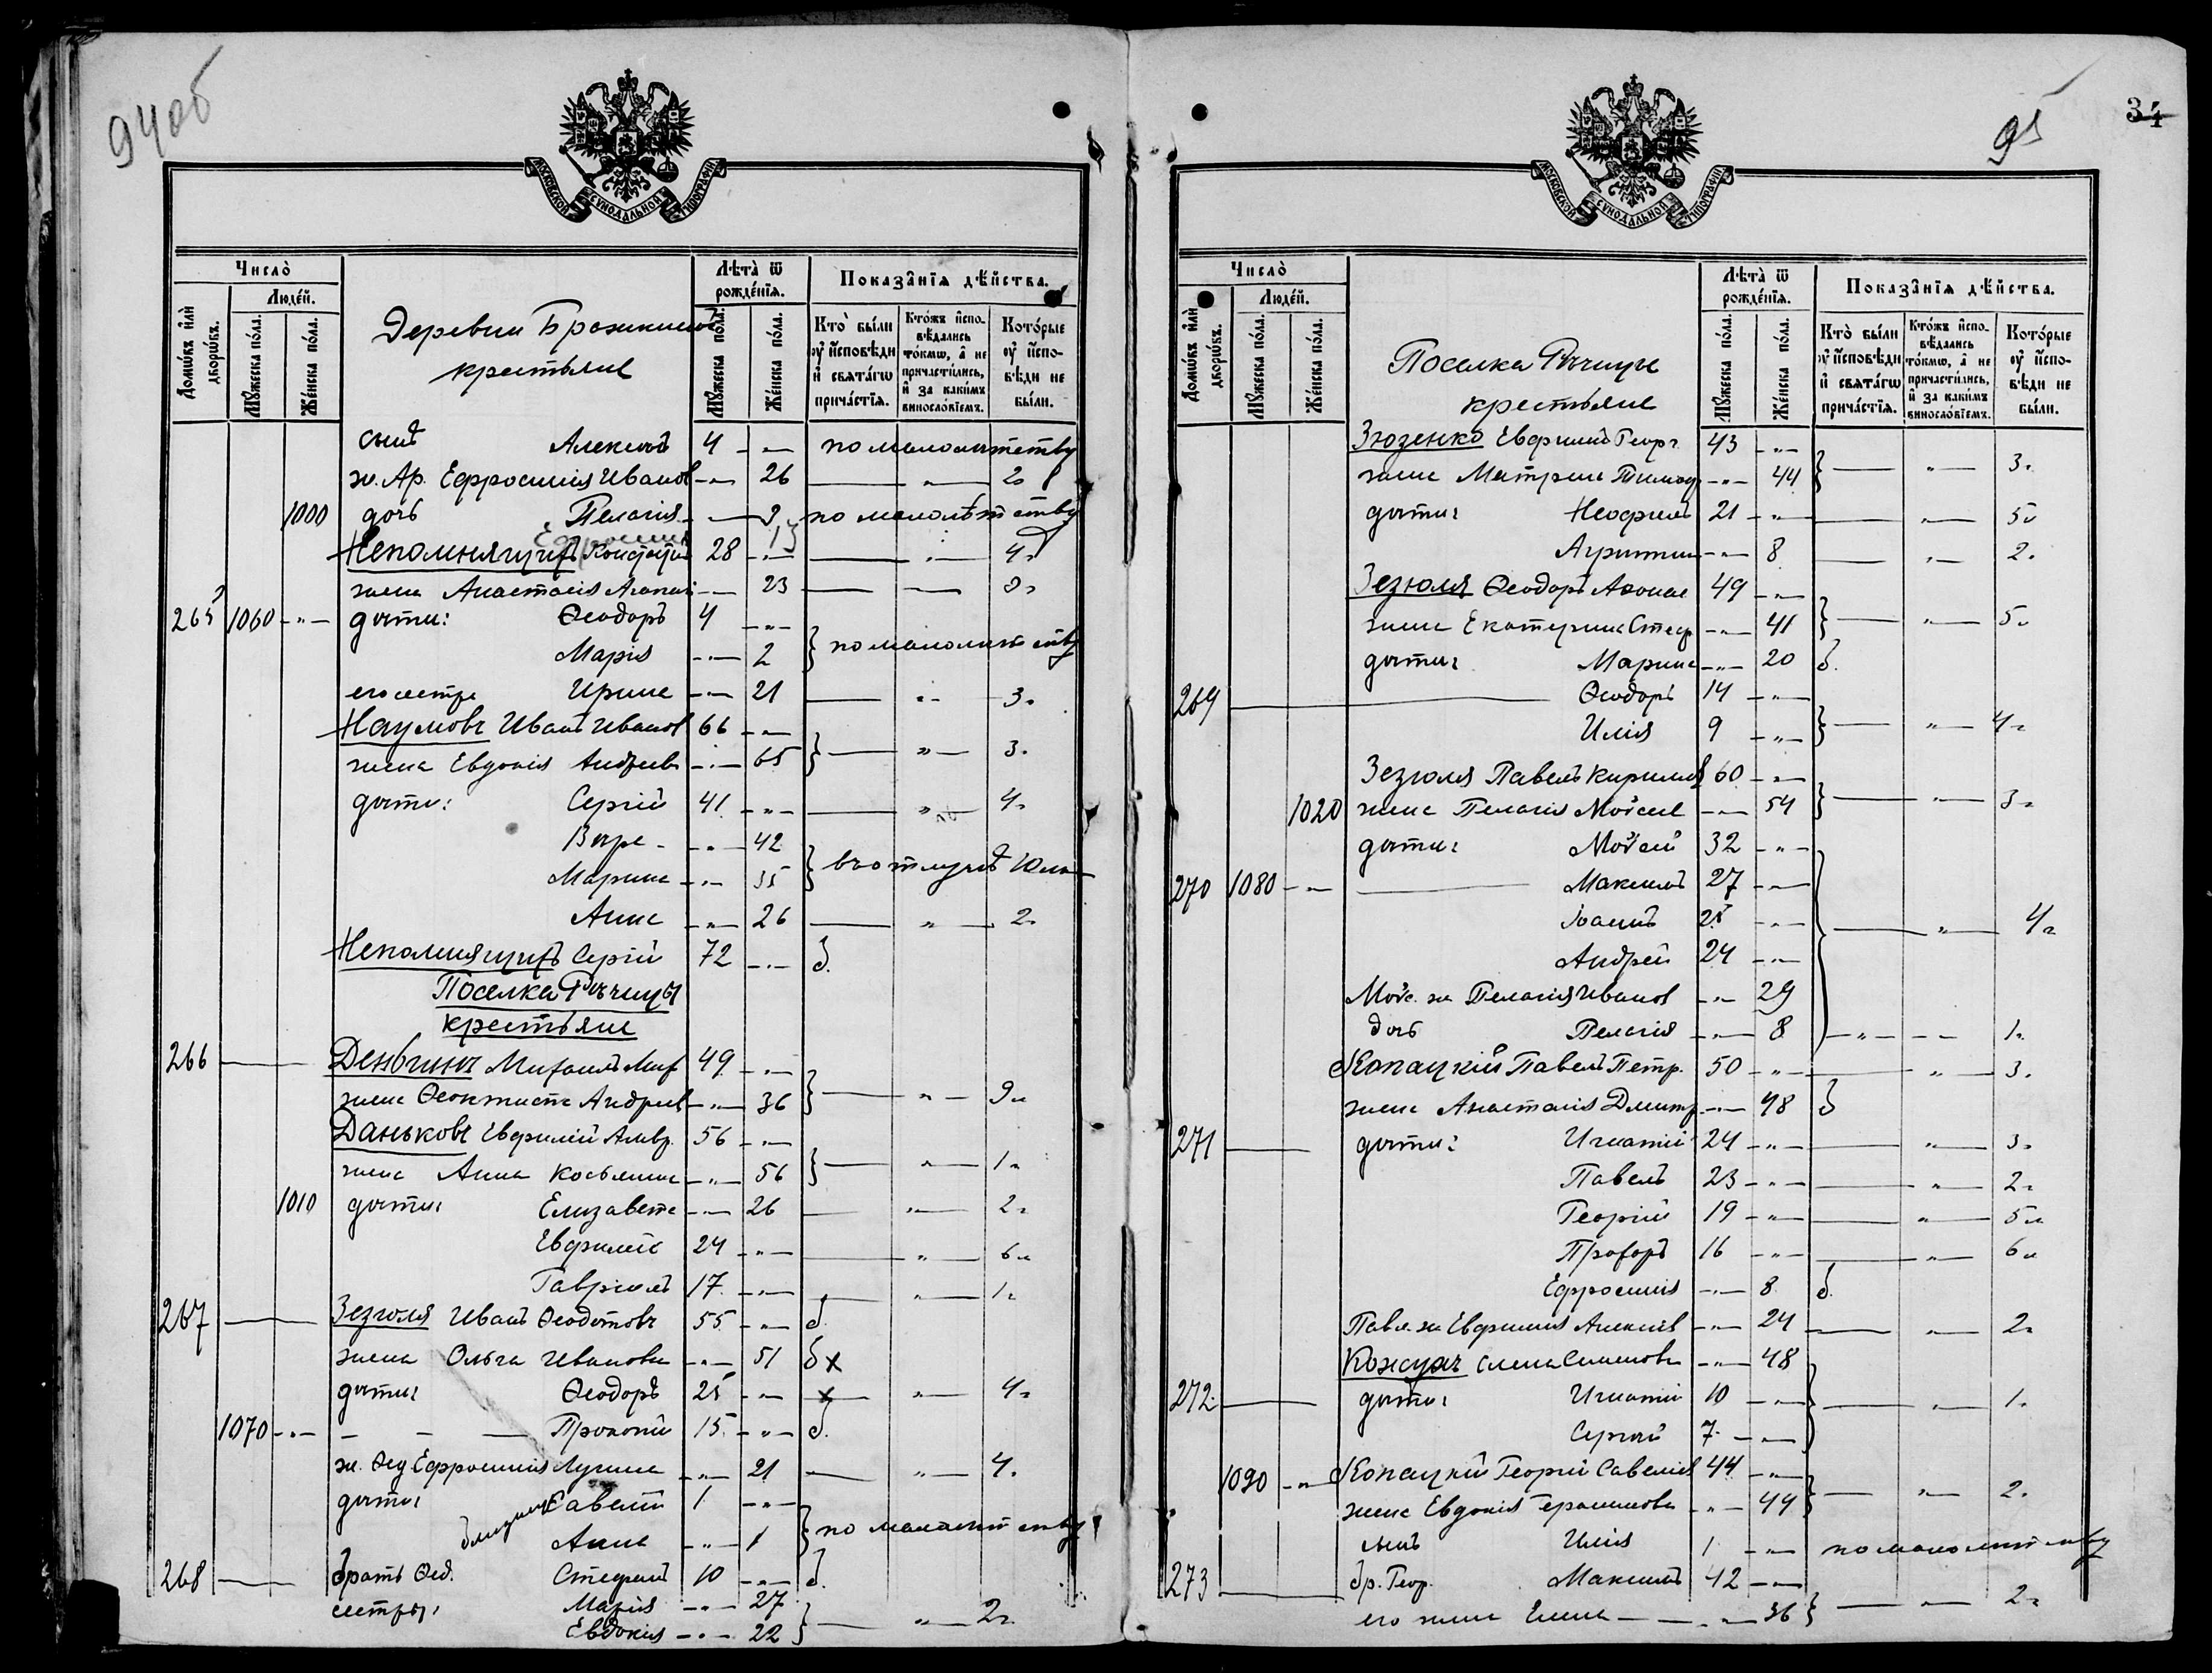 94об
МОСКОВСКОЙ СѴНОДАЛЬНОЙ ТИПОГРАФІИ
Число̀
Людéй.
Домѡ́въ и҆лѝ дворѡ́въ.
Мꙋ́жеска пóла.
Жéнска пóла.
Деревни
крестьяне
Лѣ́та ѿ рождéнїѧ.
Мꙋ́жеска пóла.
Жéнска пóла.
Показа̑нїѧ дѣ́йства.
Кто̀ бы́ли ᲂу҆ и҆́сповѣди и҆ свѧта́гѡ прича́стїѧ.
Кто́жъ и҆спо-вѣ́дались то́кмѡ, а҆ не причасти́лись, и҆ за каки́мъ виносло́вїемъ.
Кото́рые ᲂу҆ и҆́спо-вѣди не бы́ли.
сынъ Алексѣй 4 - " - по малолѣтству
ж. Ар. Ефросинія Иванов - " - 26 — " — 2
1000 дочь Пелагія - " - 9 по малолѣтству
Ефросинія 13
Непомнящихъ Констант 28 - " - — " — 4
жена Анастасія - " - 23 — — 3
265 1060 - " - дѣти: Ѳеодоръ 4 - " -
Марія - " - 2 } по малолѣтству
его сестра Ирина - " - 21 — " — 3
Наумовъ Иванъ Иванов 66 - " -
жена Евдокія Андреев - " - 65 } — " — 3
дѣти: Сергій 41 - " - — " — 4
Вѣра - " - 42
Марина - " - 35 } въ отлучкѣ
Анна - " - 26 — " — 2
Непомнящихъ Сергій 72 - " - б.
Поселка Рѣчицы
крестьяне
266 Деньгинъ Михаилъ Мих 49 - " -
жена Ѳеоктиста Андреев - " - 36 } — " — 9
Даньковъ Евфимій 56 - " -
жена Анна Косьмина - " - 56 } — " — 1
1010 дѣти: Елизавета - " - 26 — " — 2
Евфимій 24 - " - — " — 6
Гавріилъ 17 - " - — " — 1
267 Зезюля Иванъ Ѳеодотовъ 55 - " - б.
жена Ольга Иванова - " - 51 б х
дѣти: Ѳеодоръ 25 - " - х — " — 4
1070 - " - Прокопій 15 - " - б.
ж. Ѳед Ефросинія Лукина - " - 21 — " — 4
дѣти: близнецы Савелій 1 - " -
Анна - " - 1 } по малолѣтству
268 братъ Ѳед. Стефанъ 10 - " - б.
сестры: Марія - " - 27
Евдокія - " - 22 } — " — 2
34
95
МОСКОВСКОЙ СѴНОДАЛЬНОЙ ТИПОГРАФІИ
Число̀
Людéй.
Домѡ́въ и҆лѝ дворѡ́въ.
Мꙋ́жеска пóла.
Жéнска пóла.
Поселка Рѣчицы
крестьяне
Лѣ́та ѿ рождéнїѧ.
Мꙋ́жеска пóла.
Жéнска пóла.
Показа̑нїѧ дѣ́йства.
Кто̀ бы́ли ᲂу҆ и҆́сповѣди и҆ свѧта́гѡ прича́стїѧ.
Кто́жъ и҆спо-вѣ́дались то́кмѡ, а҆ не причасти́лись, и҆ за каки́мъ виносло́вїемъ.
Кото́рые ᲂу҆ и҆́спо-вѣди не бы́ли.
Зюзенко Евфимій Георг. 43 - " -
жена Матрена Тимоф - " - 44 } — " — 3
дѣти: Неофилъ 21 - " - — " — 5
Агрипина - " - 8 — " — 2
Зезюля Ѳеодоръ Афонас 49 - " -
жена Екатерина Стеф - " - 41 } — " — 5
дѣти: Марина - " - 20 б.
269 Ѳеодоръ 14 - " -
Илія 9 - " - } — " — 4
Зезюля Павелъ Кирилов 60 - " -
1020 жена Пелагія Моѵсеев - " - 54 } — " — 3
дѣти: Моѵсей 32 - " -
270 1080 - " - Максимъ 27 - " -
Іоаннъ 25 - " -
Андрей 24 - " - } — " — 4
Моѵс. ж. Пелагія Иванов - " - 29
дочь Пелагія - " - 8 - " - - - 1
Копацкій Павелъ Петр. 50 - " - — " — 3
жена Анастасія Дмитр - " - 48 б
271 дѣти: Игнатій 24 - " - — " — 3
Павелъ 23 - " - — " — 2
Георгій 19 - " - — " — 5
Прохоръ 16 - " - — " — 6
Ефросинія - " - 8 б.
Павл. ж. Евфимія Алексѣев - " - 24 — " — 2
Кожухъ Елена Симеонов - " - 48
272 дѣти: Игнатій 10 - " - } — " — 1
Сергій 7 - " -
1090 - " - Копацкій Георгій Савеліев 44 - " -
жена Евдокія Герасимова - " - 44 } — " — 2
сынъ Илія 1 - " - по малолѣтству
273 бр. Геор. Максимъ 42 - " -
его жена Елена - " - 36 } — " — 2